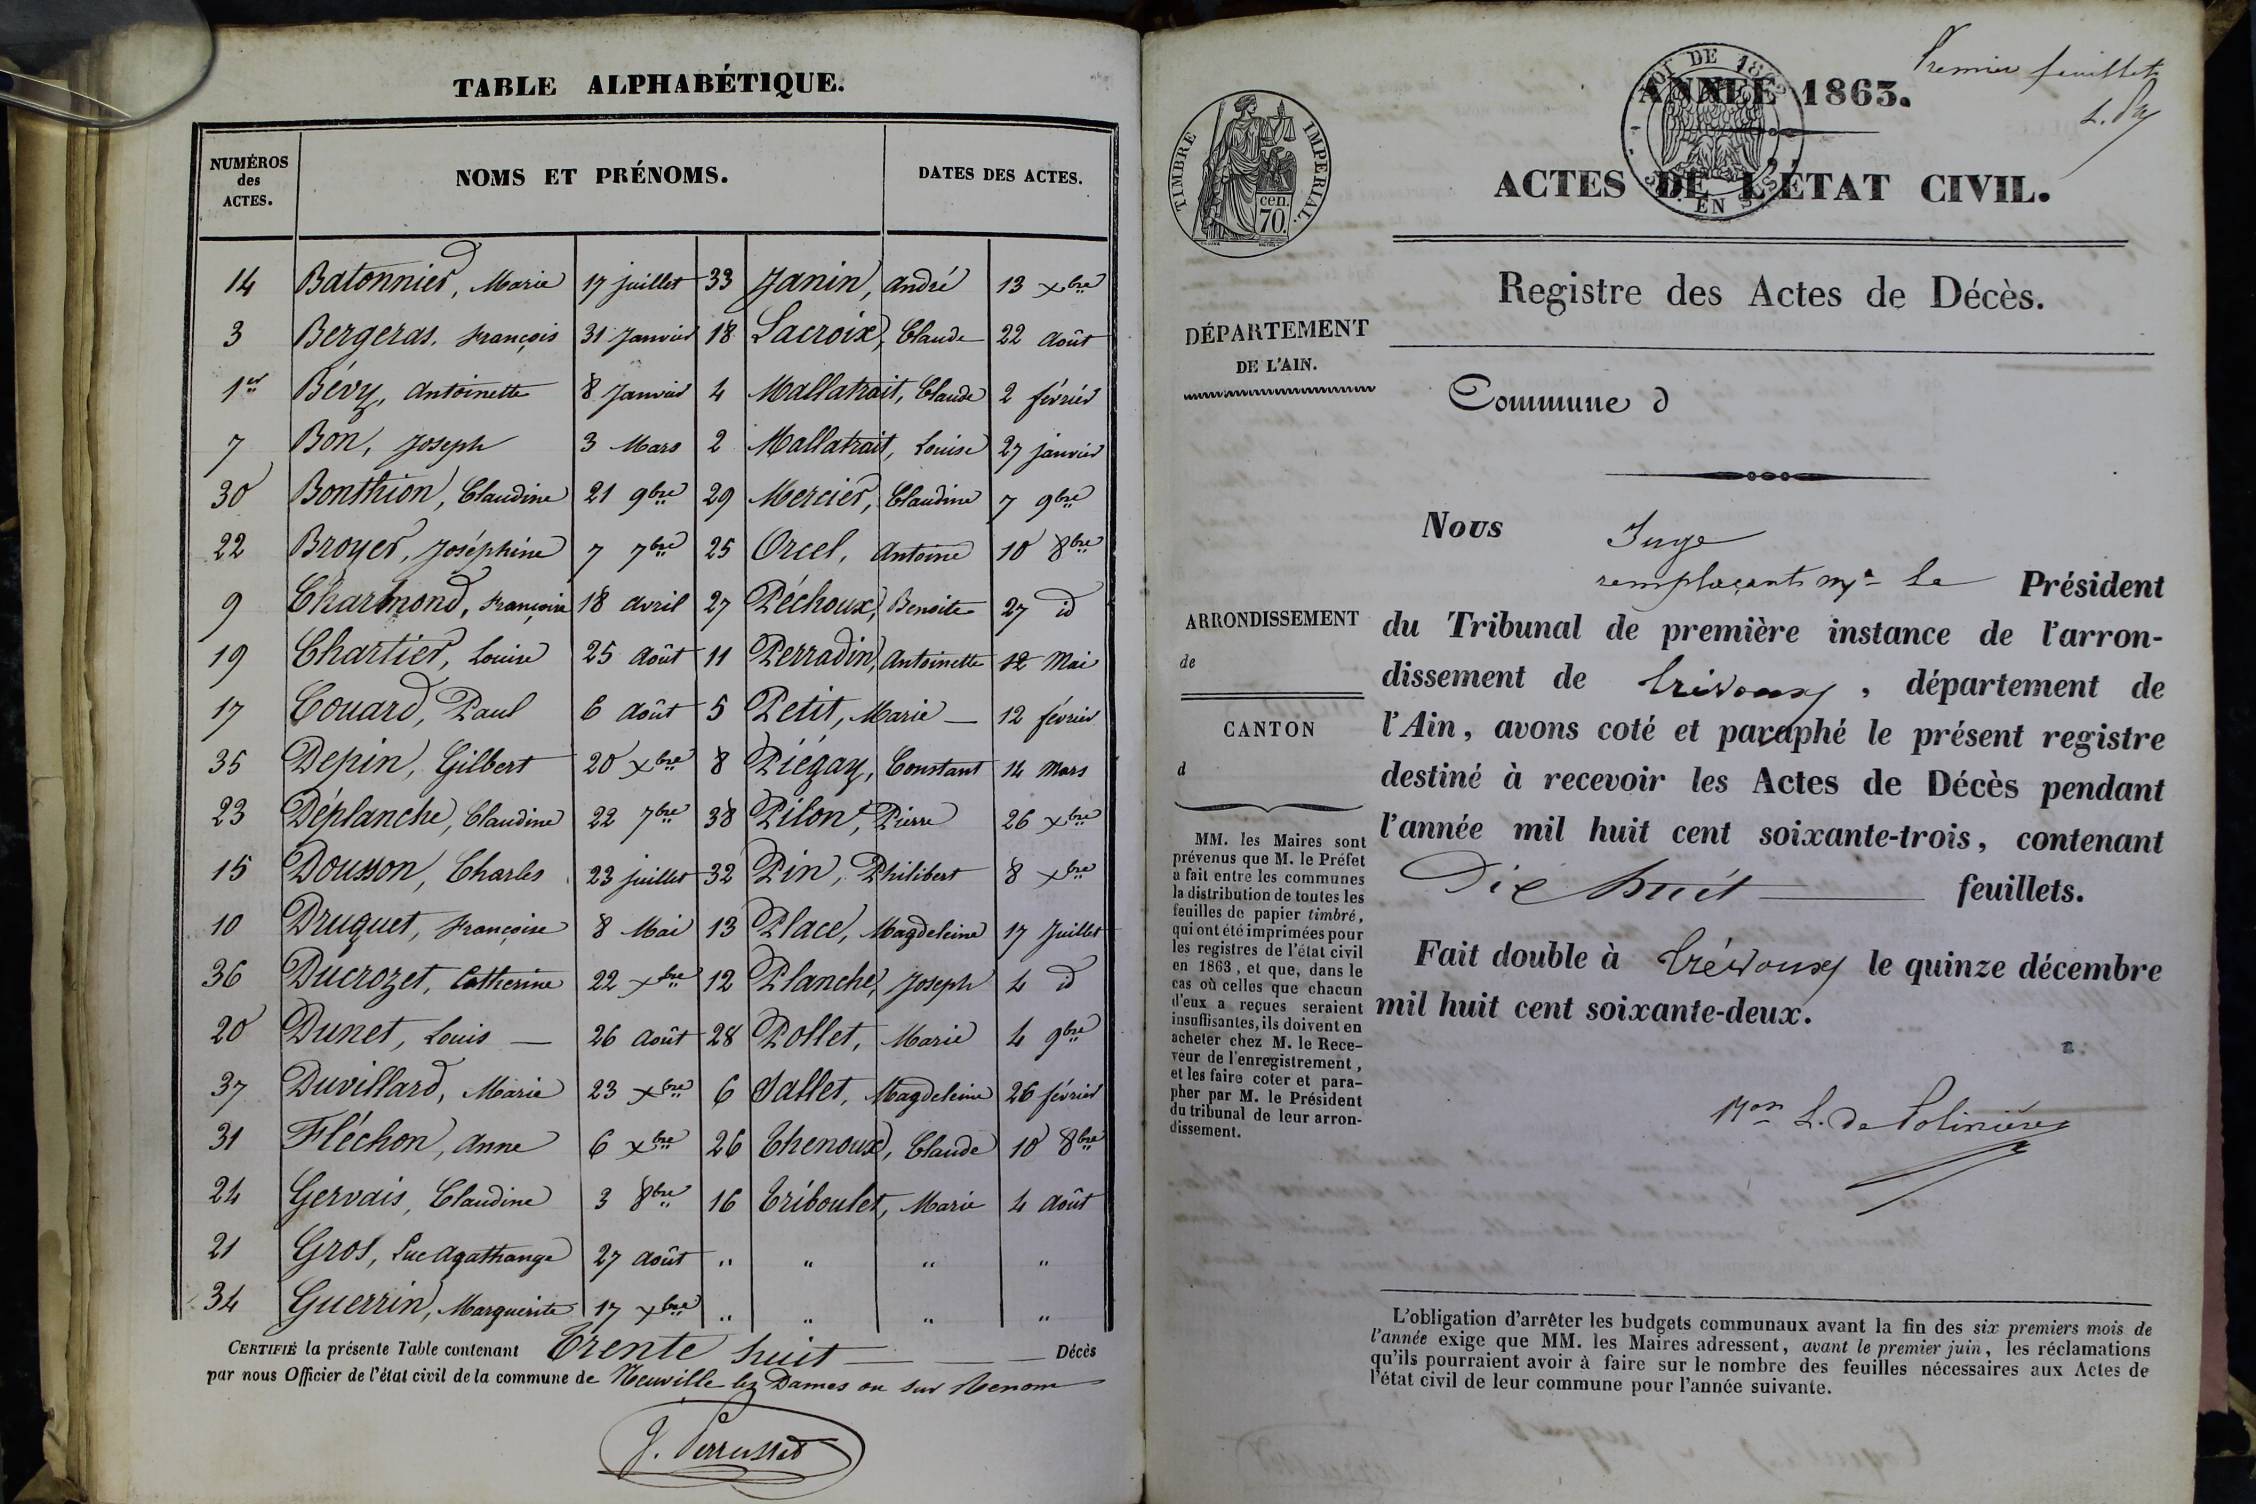 TABLE ALPHABÉTIQUE.
NUMÉROS des ACTES. NOMS ET PRÉNOMS. DATES DES ACTES.
14 Batonnier, Marie 17 juillet 33 Janin, André 13 xbre
3 Bergeras, François 31 Janvier 18 Lacroix, Claude 22 Août
1er Bévy, Antoinette 8 Janvier 4 Mallatrait, Claude 2 février
7 Bon, Joseph 3 Mars 2 Mallatrait, Louise 27 janvier
30 Bonthion, Claudine 21 9bre 29 Mercier, Claudine 7 9bre
22 Broyer, Joséphine 7 7bre 25 Orcel, Antoine 10 8bre
9 Charmond, Françoise 18 avril 27 Péchoux, Benoite 27 id
19 Chartier, Louise 25 Août 11 Perradin, Antoinette 12 Mai
17 Couard, Paul 6 Août 5 Petit, Marie — 12 février
35 Depin, Gilbert 20 xbre 8 Piégay, Constant 14 Mars
23 Déplanche, Claudine 22 7bre 38 Pilon, Pierre 26 xbre
15 Dousson, Charles 23 juillet 32 Pin, Philibert 8 xbre
10 Druguet, Françoise 8 Mai 13 Place, Magdeleine 17 Juillet
36 Ducrozet, Catherine 22 xbre 12 Planche, Joseph 4 d
20 Dunet, Louis — 26 Août 28 Pollet, Marie 4 9bre
37 Duvillard, Marie 23 xbre 6 Sallet, Magdeleine 26 février
31 Fléchon, Anne 6 xbre 26 Thenoux, Claude 10 8bre
24 Gervais, Claudine 3 8bre 16 Triboulet, Marie 4 Août
21 Gros, Luc Agathange 27 Août " " " "
34 Guerrin, Marguerite 17 xbre " " " "
CERTIFIÉ la présente Table contenant Trente huit — Décès
par nous Officier de l'état civil de la commune de Neuville les Dames ou sur Renom
J. Perrusset
Premier feuillet
TIMBRE IMPÉRIAL.
cen.
70.
LOI DE 1862
EN SUS
ANNÉE 1863.
ACTES DE L'ÉTAT CIVIL.
Registre des Actes de Décès.
DÉPARTEMENT
DE L'AIN.
Commune d
Nous Juge
remplaçant Mr le Président
ARRONDISSEMENT
de
CANTON
d
du Tribunal de première instance de l'arron-
dissement de Trévoux, département de
l'Ain, avons coté et paraphé le présent registre
destiné à recevoir les Actes de Décès pendant
l'année mil huit cent soixante-trois, contenant
Dix huit — feuillets.
Fait double à Trévoux le quinze décembre
mil huit cent soixante-deux.
MM. les Maires sont
prévenus que M. le Préfet
a fait entre les communes
la distribution de toutes les
feuilles de papier timbré,
qui ont été imprimées pour
les registres de l'état civil
en 1863, et que, dans le
cas où celles que chacun
d'eux a reçues seraient
insuffisantes, ils doivent en
acheter chez M. le Rece-
veur de l'enregistrement,
et les faire coter et para-
pher par M. le Président
du tribunal de leur arron-
dissement.
L. de Polinière
L'obligation d'arrêter les budgets communaux avant la fin des six premiers mois de
l'année exige que MM. les Maires adressent, avant le premier juin, les réclamations
qu'ils pourraient avoir à faire sur le nombre des feuilles nécessaires aux Actes de
l'état civil de leur commune pour l'année suivante.